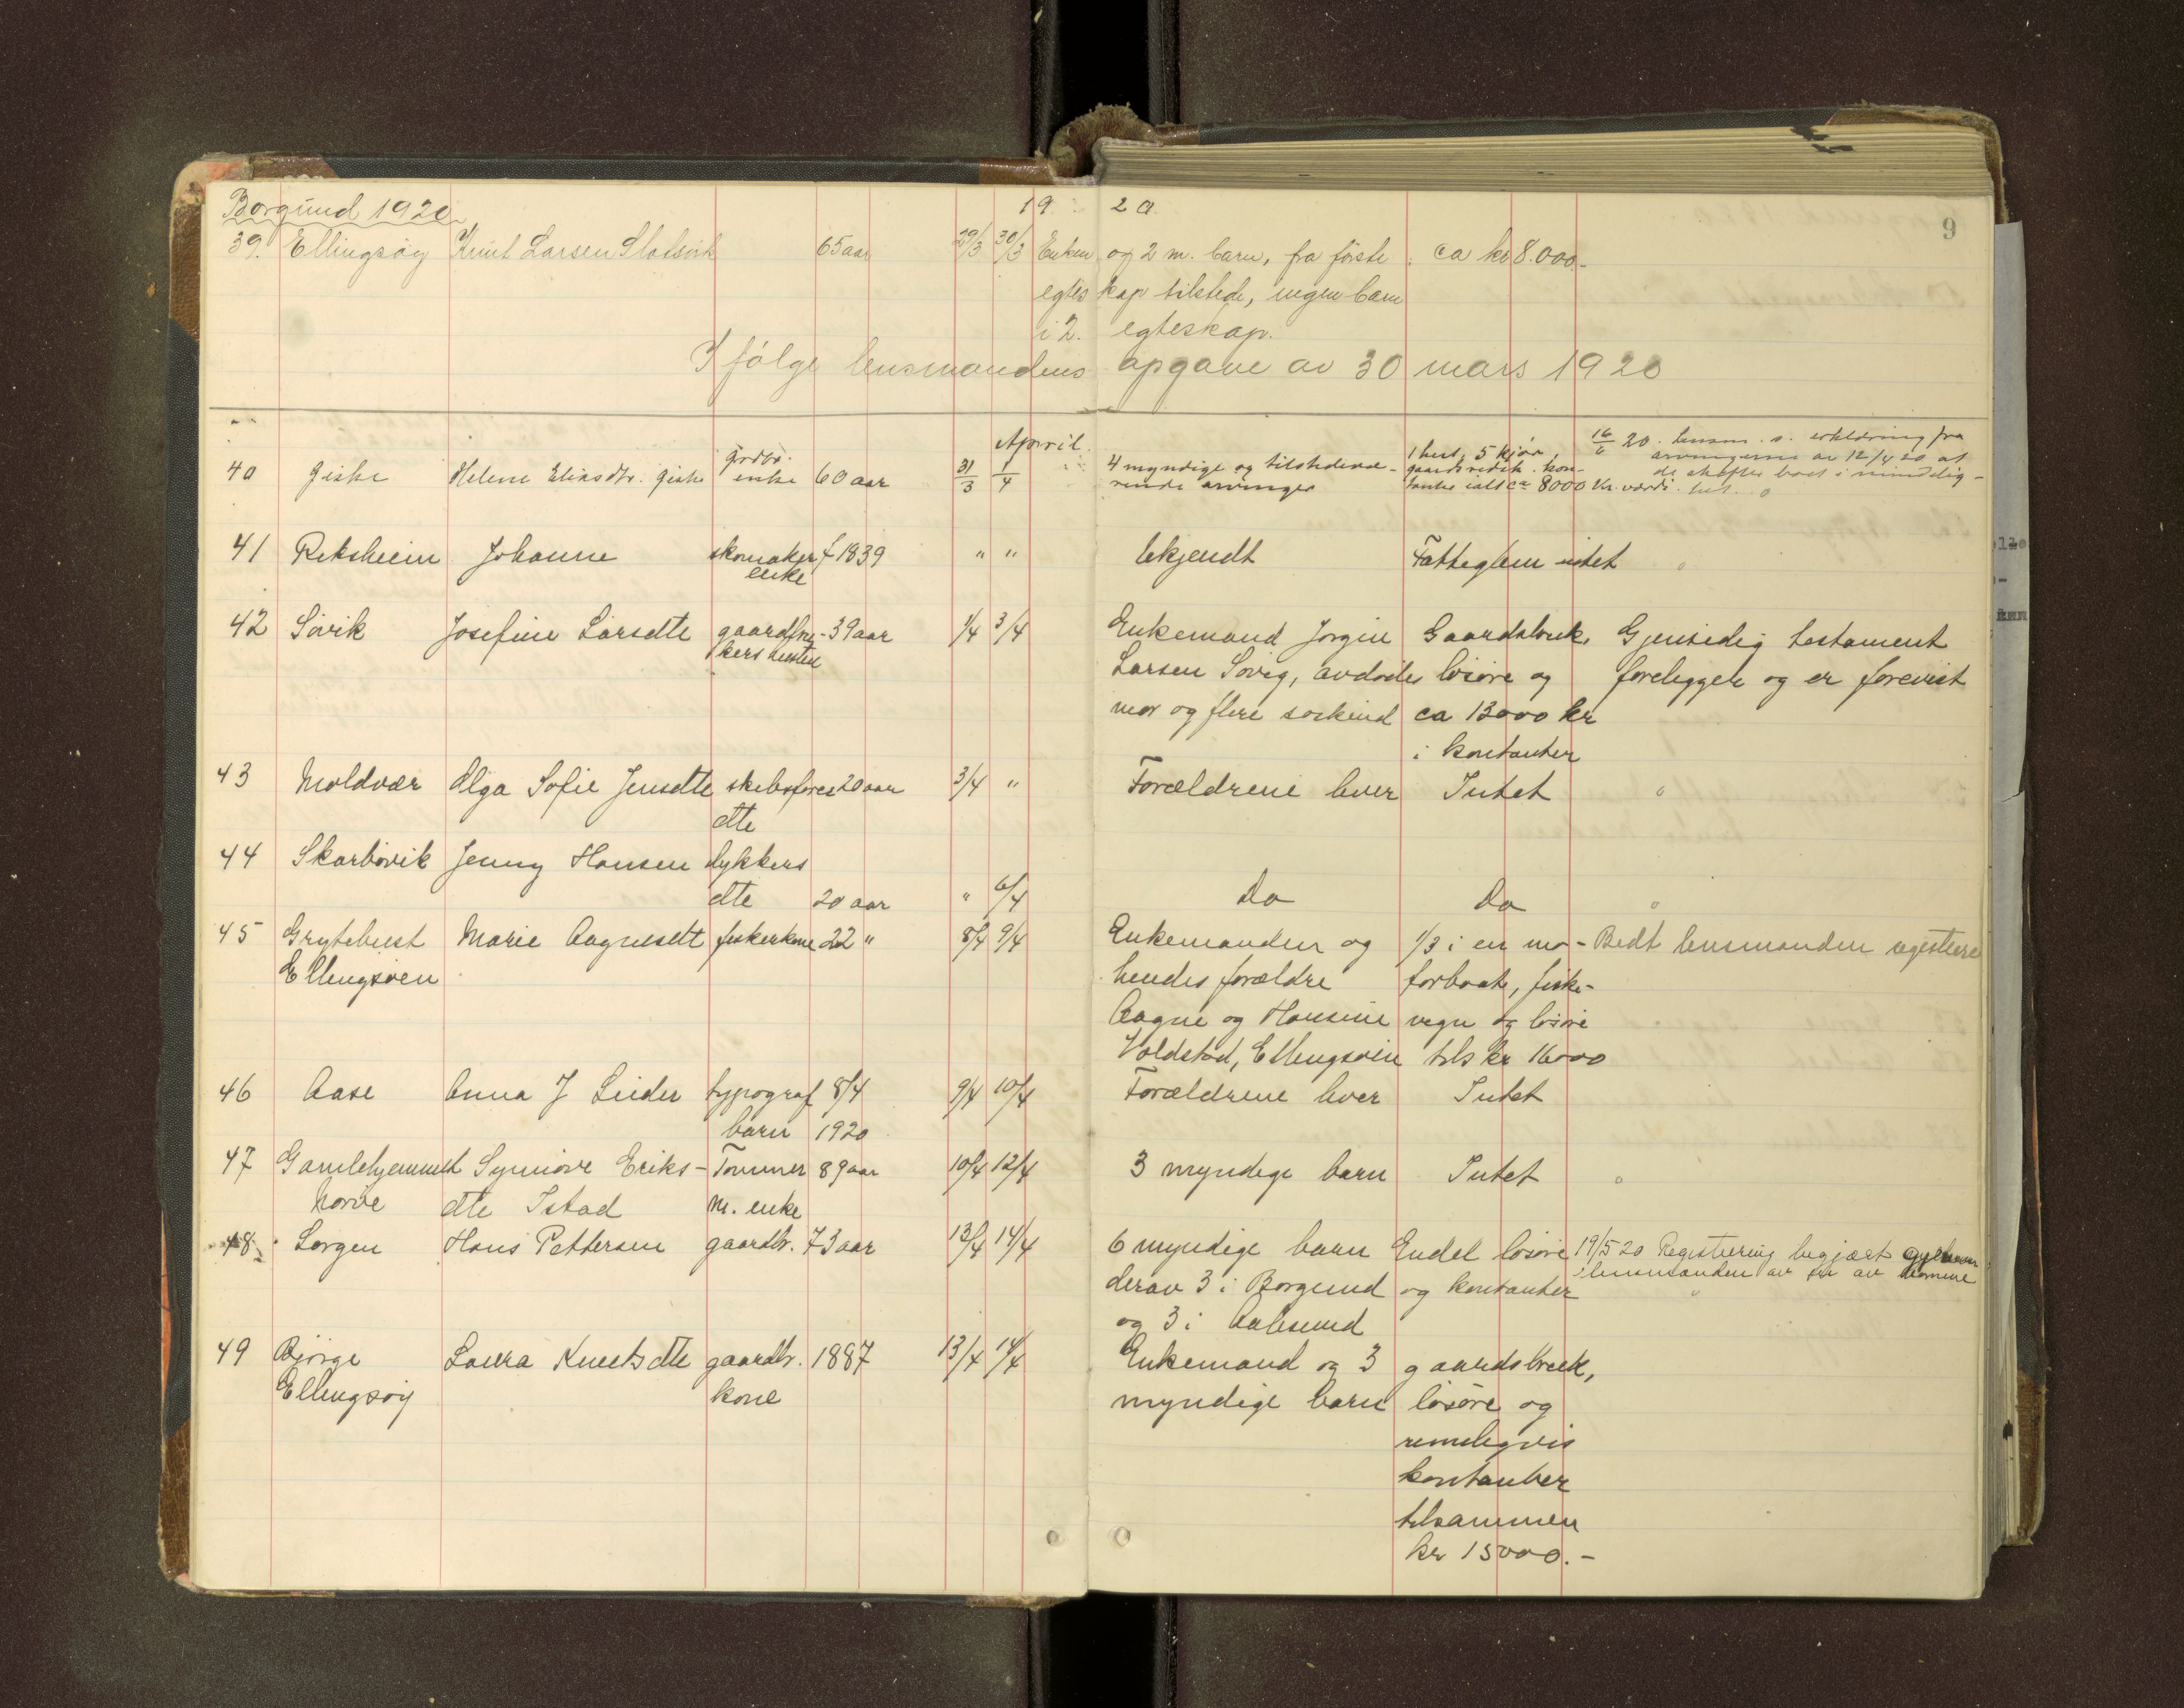 Borgund 1920
19 20
9
39. Ellingsøy Knut Larsen Slotsvik 65 aar 29/3 30/3 Enken og 2 m. barn, fra første ca kr 8.000.-
egteskap tilstede, ingen barn
i 2. egteskap.
Ifølge lensmandens opgave av 30 mars 1920
April
40 Giske Helene Eliasdtr. Giske grdbr. enke 60 aar 31/3 1/4 4 myndige og tilstedevæ- 1 hest, 5 kjør, 20. lensm. s. erklæring fra
rende arvinger gaardsredsk. kon- arvingerne av 12/4 20 at
tanter ialt ca 8000 Kr. værdi. de skifter boet i mindelig-
het.
41 Reksheim Johanne skomaker f 1839 " " Ukjendt Fattiglem intet "
enke
42 Sørik Josefine Larsdtr gaardbru- 39 aar 1/4 3/4 Enkemand Jørgen Gaardsbruk, Gjensidig testament
kers hustru Larsen Søvig, avdødes løsøre og foreligger og er forevist
mor og flere søskend ca 13000 kr
i kontanter
43 Moldvær Olga Sofie Jensdtr skibsførers 20 aar 3/4 " Forældrene lever Intet "
dtr
44 Skarbøvik Jenny Hansen dykkers
dtr 20 aar " 6/4 Do Do "
45 Grytebust Marie Aagnesdt fiskerkone 22 " 8/4 9/4 Enkemanden og 1/3 i en mo- Bedt lensmanden registrere
Ellingsøen hendes forældre torbaat, fiske-
Aagne og Hansine vegn og løsøre
Voldstad, Ellingsøen tils kr 16000
46 Aase Anna J Linder typograf 8/4 9/4 10/4 Forældrene lever Intet
barn 1920
47 Gamlehjemmet Synnøve Eriks- Tømmer 89 aar 10/4 12/4 3 myndige barn Intet "
Norve dtr Istad m. enke
48 Lorgen Hans Pettersen gaardbr. 73 aar 13/4 14/4 6 myndige barn Endel løsøre 19/5 20 Registrering begjært
derav 3 i Borgund og kontanter lensmanden av
og 3 i Aalesund
49 Bjørge Laura Knutsdtr gaardbr. 1887 13/4 14/4 Enkemand og 3 gaardsbruk,
Ellingsøy kone myndige barn løsøre og
rimeligvis
kontanter
tilsammen
kr 15000.-